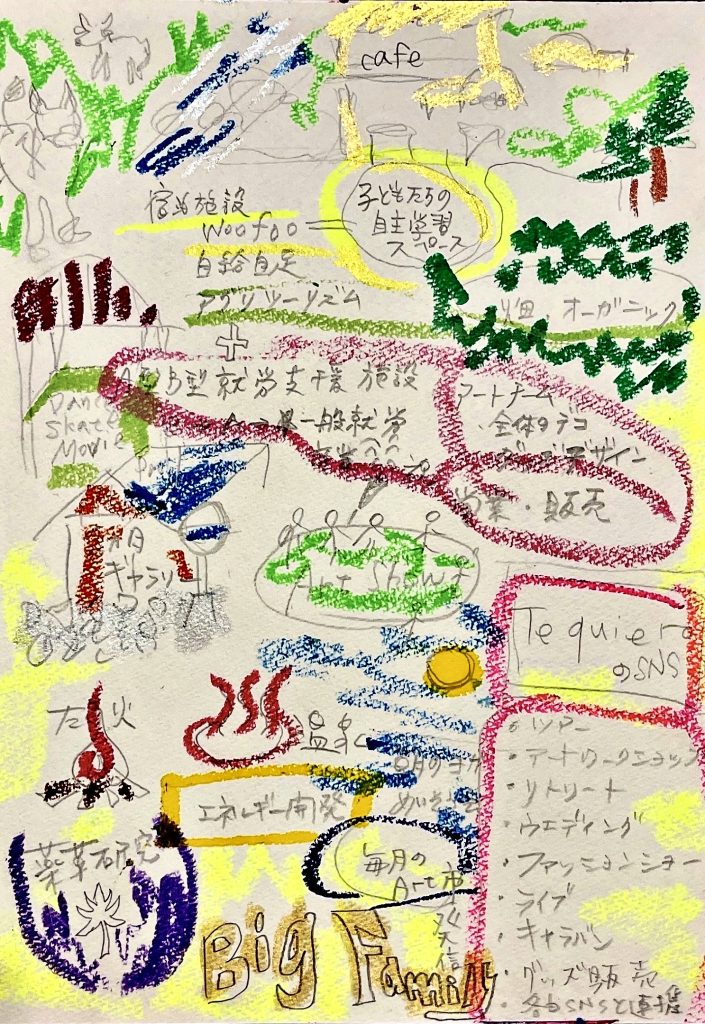 cafe
宿泊施設
woofoo
子どもたちの
自主学習
スペース
自給自足
アグリツーリズム
畑、オーガニック
+
B型就労支援施設
一般就労
アートチーム
全体のデコ
デザイン
営業・販売
Dance
Skate
Movie
ギャラリー
Art Show
Te quiero
のSNS
たき火
温泉
エネルギー開発
薬草研究
毎月の
Art市
ツアー
・アートワークショップ
・リトリート
・ウエディング
・ファッションショー
・ライブ
・キャラバン
・グッズ販売
・各自SNSと連携
Big Family